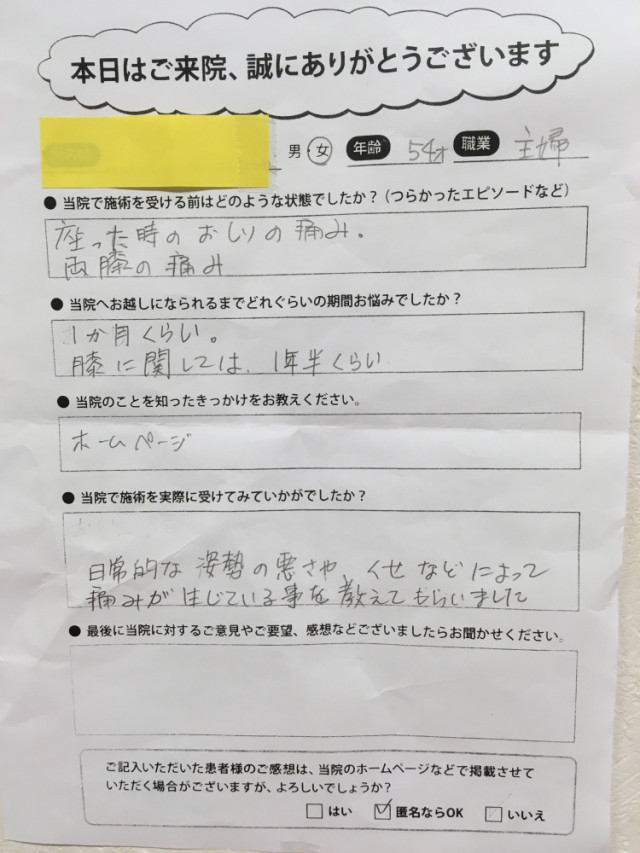 本日はご来院、誠にありがとうございます
男・女 年齢 54才 職業 主婦
● 当院で施術を受ける前はどのような状態でしたか？（つらかったエピソードなど）
座った時のおしりの痛み。
両膝の痛み
● 当院へお越しになられるまでどれぐらいの期間お悩みでしたか？
1か月くらい。
膝に関しては、1年半くらい
● 当院のことを知ったきっかけをお教えください。
ホームページ
● 当院で施術を実際に受けてみていかがでしたか？
日常的な姿勢の悪さや、くせなどによって
痛みが生じている事を教えてもらいました
● 最後に当院に対するご意見やご要望、感想などございましたらお聞かせください。
ご記入いただいた患者様のご感想は、当院のホームページなどで掲載させて
いただく場合がございますが、よろしいでしょうか？
□ はい ☑ 匿名ならOK □ いいえ